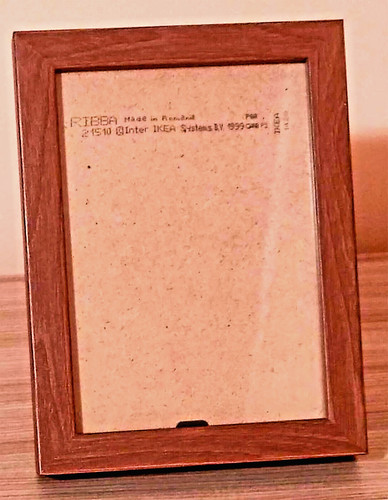 RIBBA Made in
21510 © Inter IKEA Systems B.V. 1999
IKEA